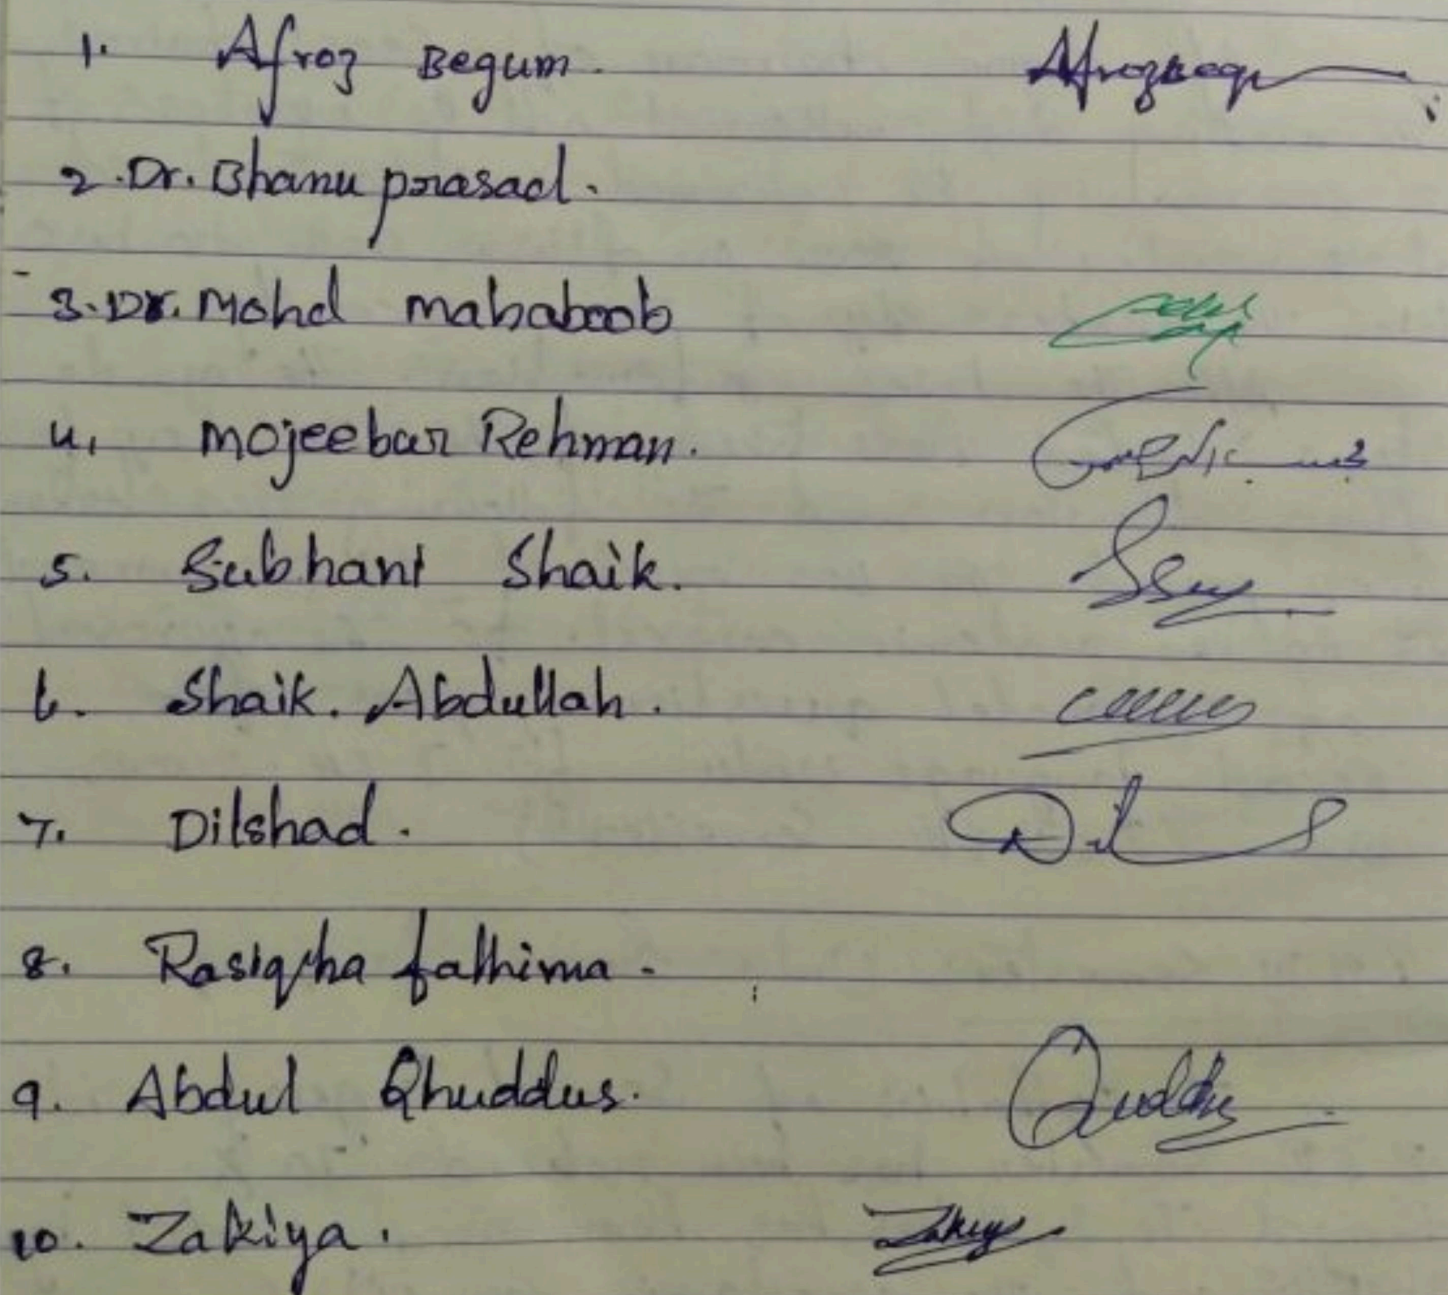 1. Afroz Begum. Afrozbegu
2. Dr. Bhanu prasad.
3. Dr. Mohd mahaboob
4. mojeebar Rehman.
5. Subhani Shaik.
6. Shaik. Abdullah.
7. Dilshad. Dil
8. Rasiqha fathima.
9. Abdul Qhuddus. Quddus
10. Zakiya. Zakiya